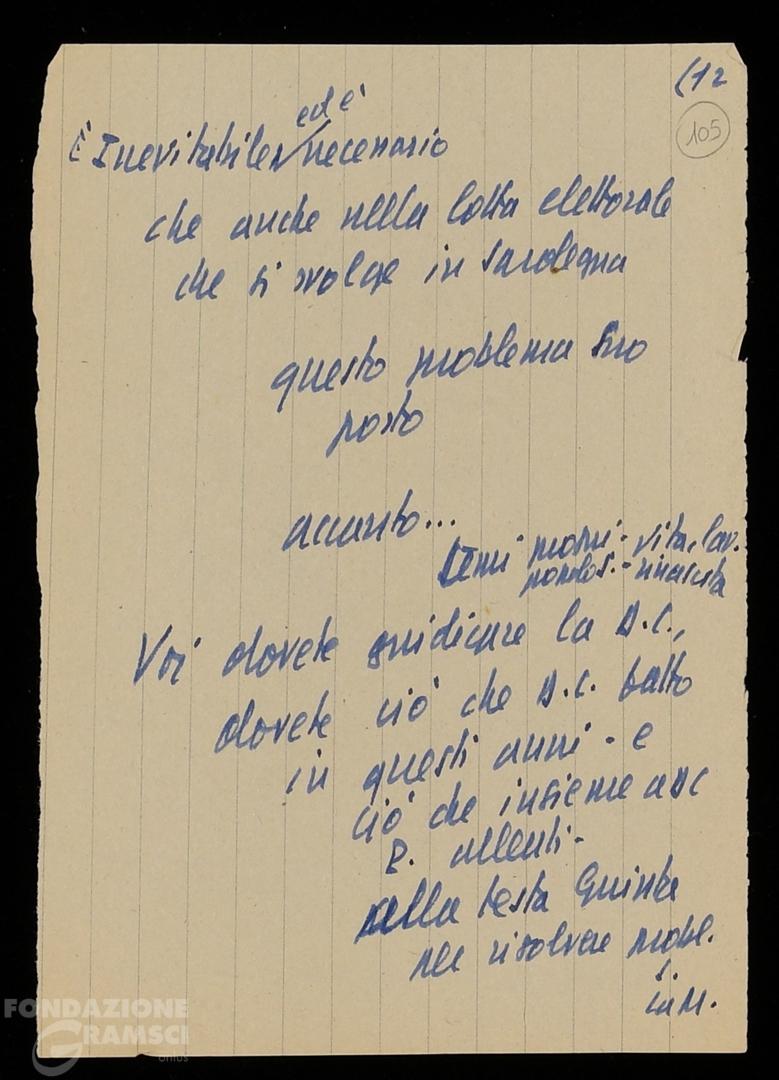 (12
105
È Inevitabile ed è necessario
che anche nella lotta elettorale
che si svolge in Sardegna
questo problema sia
posto
accanto...
temi vita, lav.
rinascita
Voi dovete giudicare la D.C.,
dovete ciò che D.C. fatto
in questi anni - e
ciò che insieme a DC
P. alleati -
alla testa Giunta
per risolvere probl.
FONDAZIONE
GRAMSCI
onlus